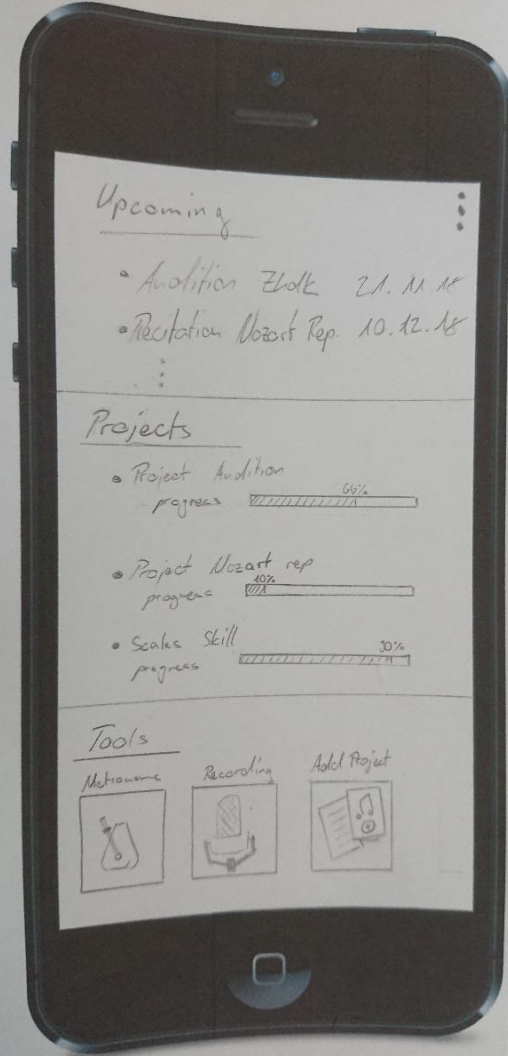 Upcoming
• Audition ZHdK 21.11.18
• Recitation Mozart Rep. 10.12.18
Projects
• Project Audition
66%
progress
• Project Mozart rep
10%
progress
• Scales Skill
90%
progress
Tools
Metronome Recording Add Project